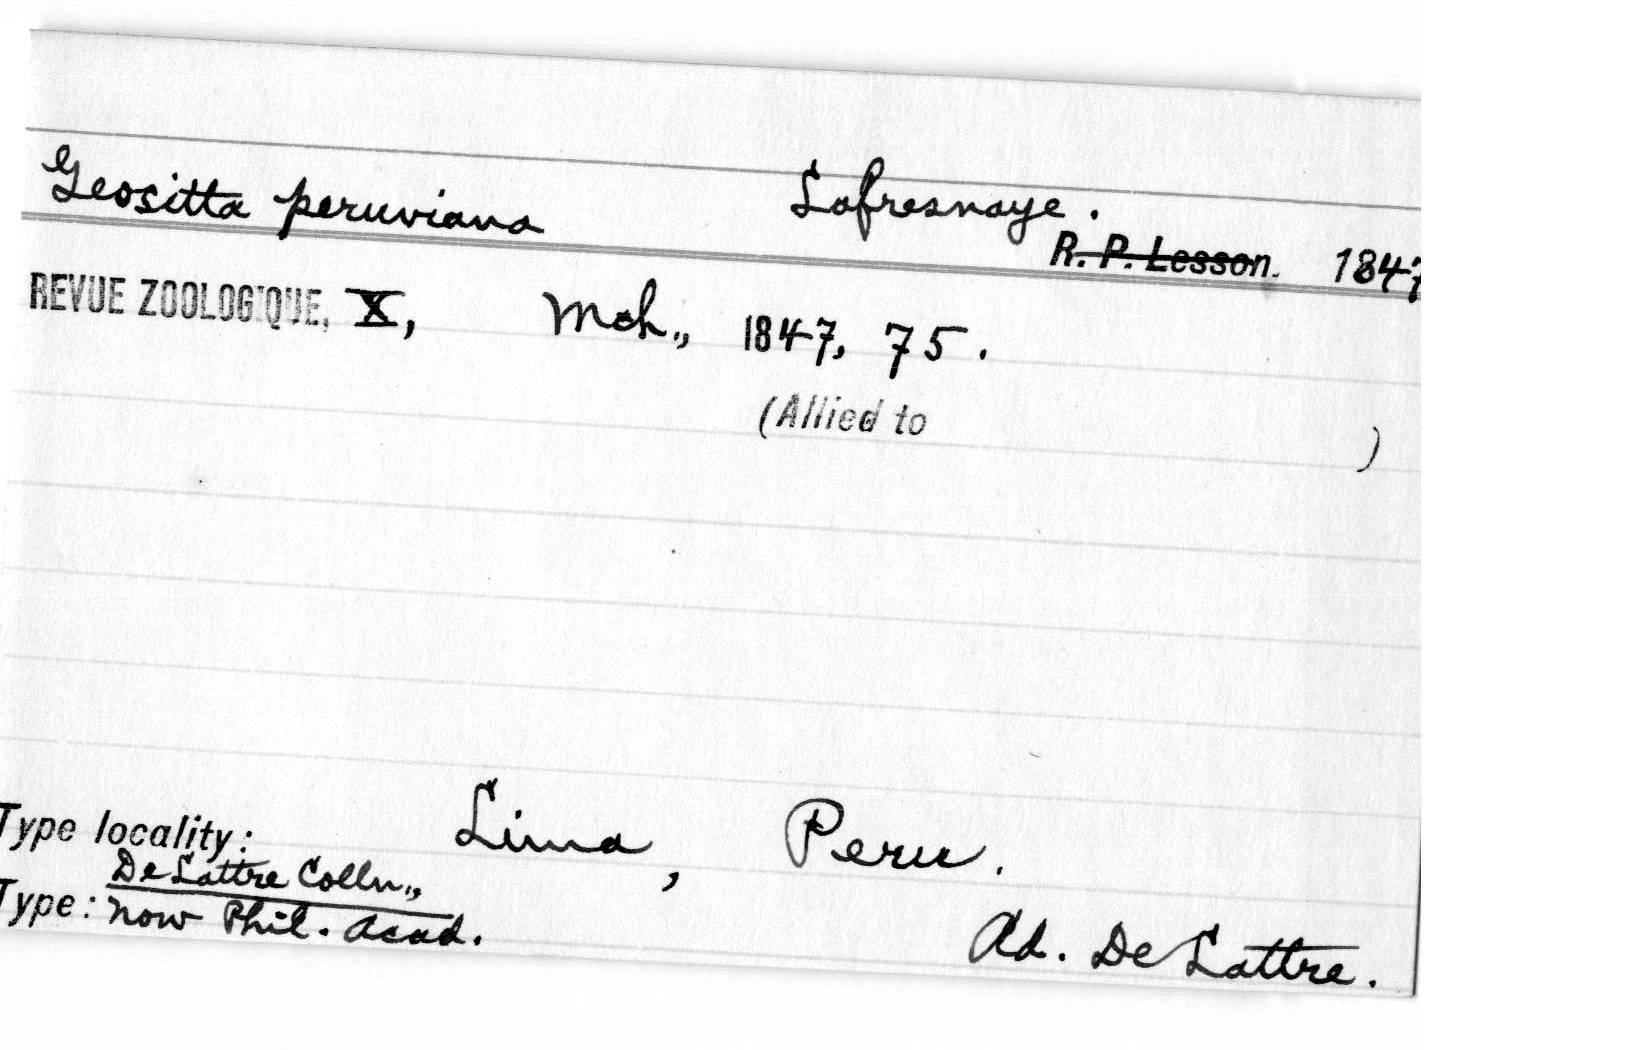 Geositta peruviana Lafresnaye.
R. P. Lesson. 1847
REVUE ZOOLOGIQUE, X, Mch., 1847, 75.
(Allied to )
Type locality: Lima, Peru.
De Lattre Colln.,
Type: now Phil. Acad.
Ad. De Lattre.